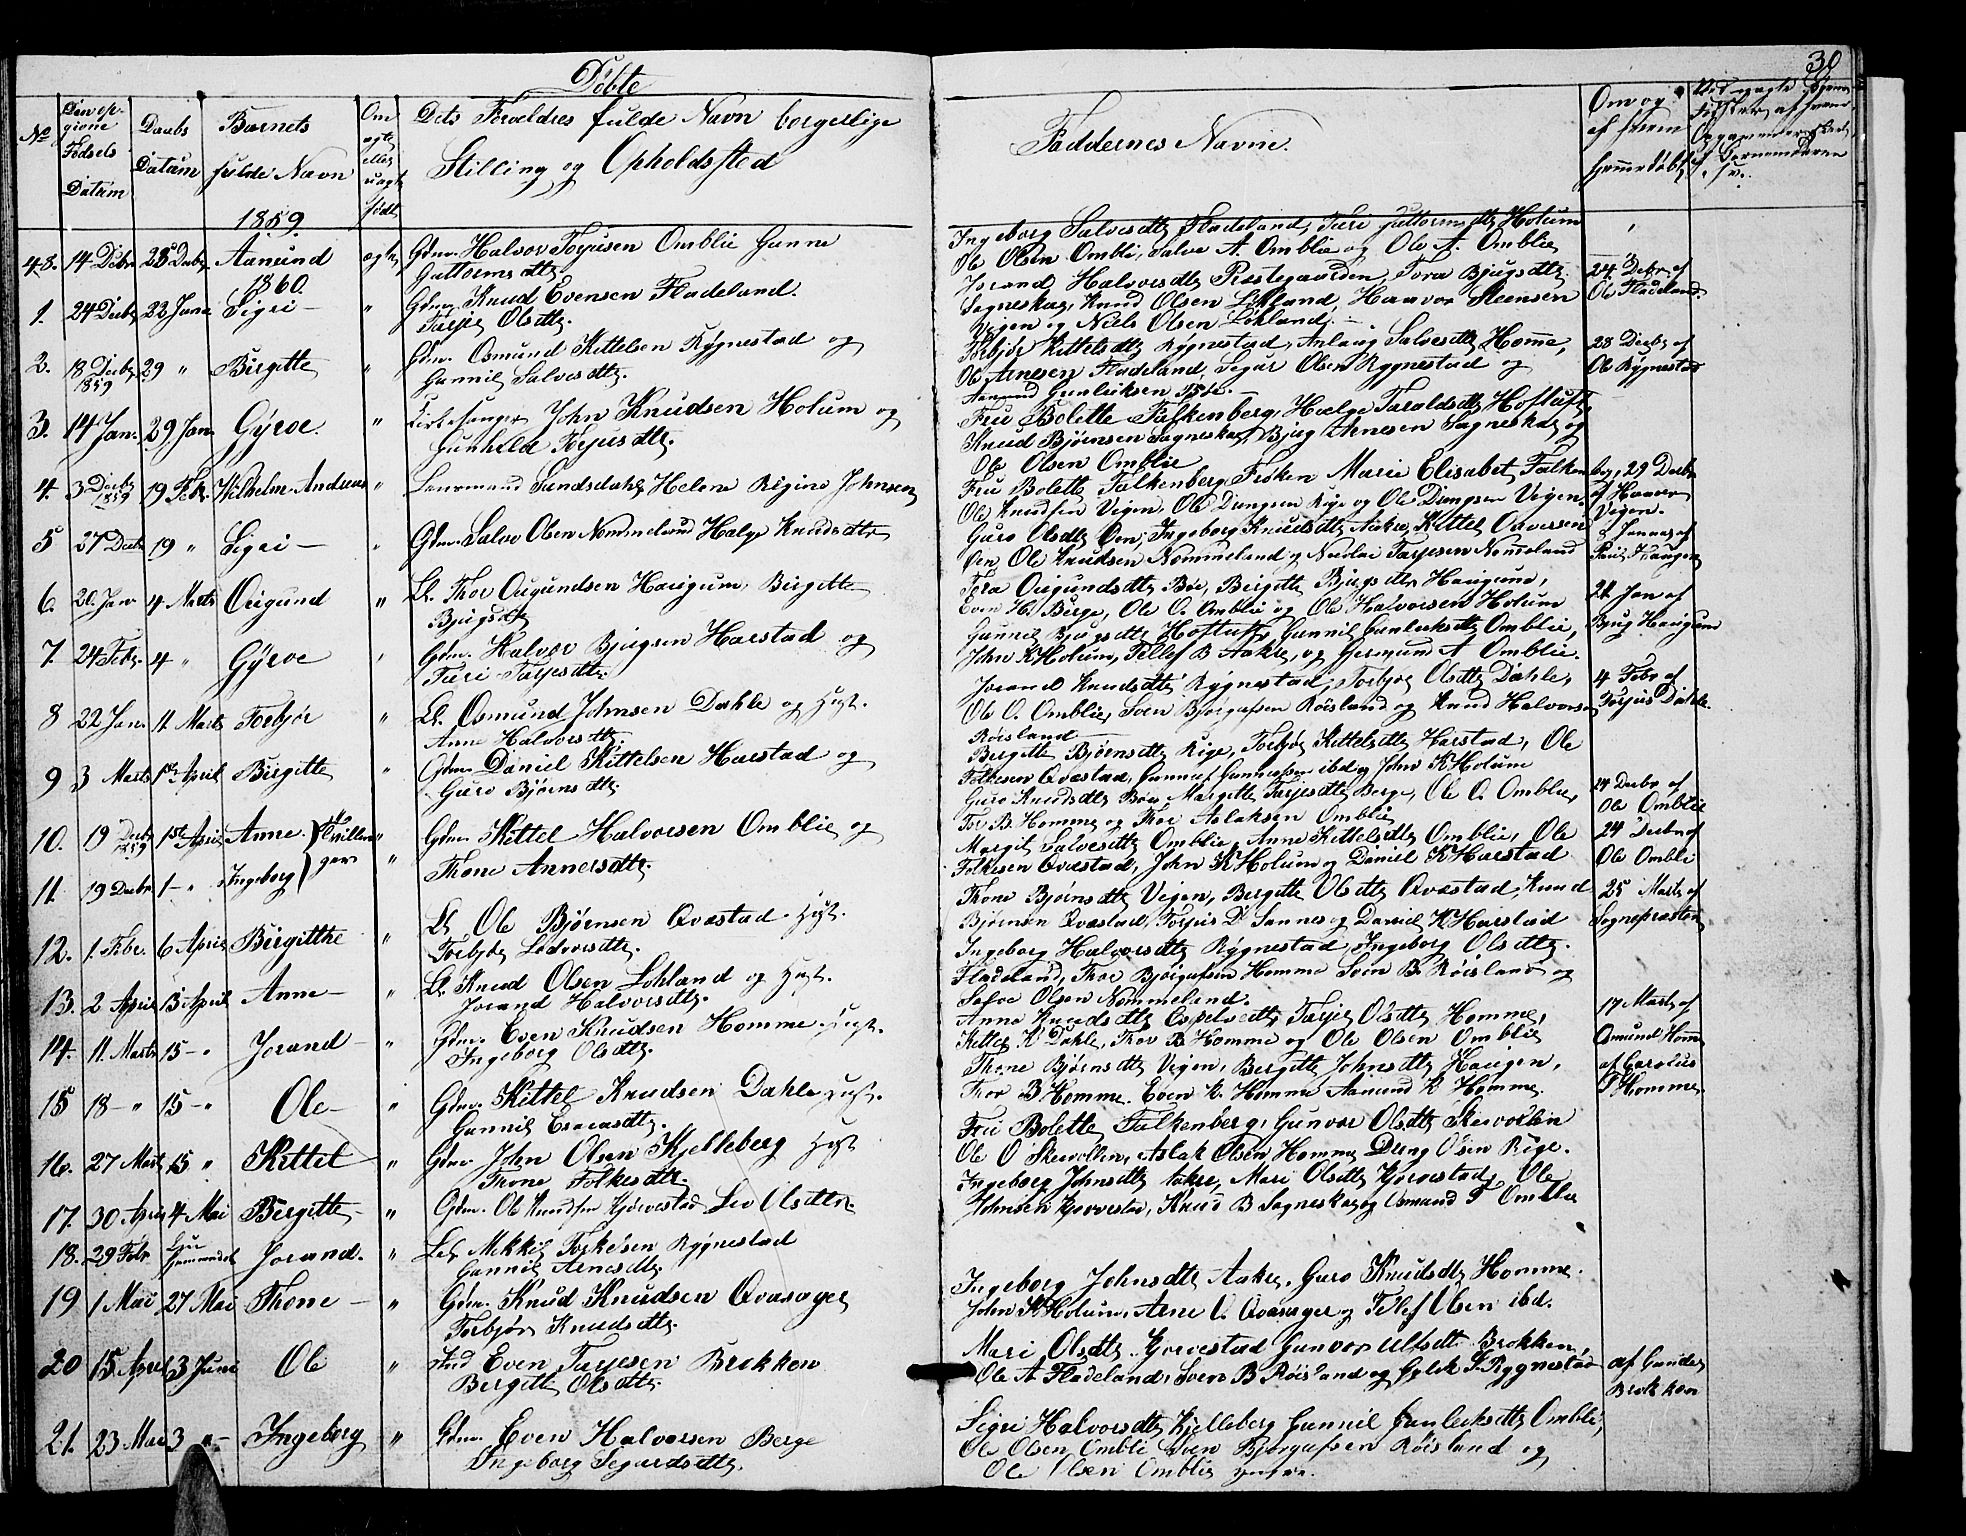 30
Døbte
No
Den opgivne Fødsels Datum
Daabs Datum
Barnets fulde Navn
Om ægte eller uægte født
Dets Forældres fulde Navn borgerlige Stilling og Opholdssted
Faddernes Navne.
Om og af hvem hjemmedøbt
1859.
48. 14 Decbr 28 Decbr Aamund ægte Gdm. Halvor Torjusen Omblie Gunne
Guttormsdtr
Ingeborg Salvesdtr Fladeland, Turi Guttormsdtr Holum
Ole Olsen Ombli, Salve A. Omblie og Ole A. Omblie
1860.
1. 24 Decbr 22 Janu Sigri — " Gdm. Knud Evensen Fladeland.
Tarjer Olsdtr.
Jorand Halvorsdtr Præstegaarden, Tora Bjugsdtr
Sagneskar, Knud Olsen Løkland, Haavor Steensen
Vegen og Niels Olsen Løkland. —
24 Decbr af
Ole Fladeland.
2. 18 Decbr 1859 29 " Birgitte " Gdm. Osmund Kittelsen Rygnestad og
Gunnil Salvesdtr.
Torbjør Kittelsdtr Rygnestad, Anlaug Salvesdtr Homme,
Ole Arnesen Fladeland, Segur Olsen Rygnestad og
Aamund Gunleiksen
28 Decbr af
Ole Rygnestad
3. 14 Jan. 29 Jan. Gyroe. " Kirkesanger John Knudsen Holum og
Gunhild Torjusdtr.
Fru Bolette Falkenberg, Hælge Taraldsdtr Hoftuft,
Knud Bjørnsen Sagneskar, Bjug Arnesen Sagneskar og
Ole Olsen Omblie
4. 3 Decbr 1859 19 Febr. Wilhelm Andreas " Lensmand Sundsdahl, Helene Regine Johnsen
Fru Bolette Falkenberg, Frøken Marie Elisabet Falkenberg,
Ole Knudsen Vegen, Ole Dungsen Rige og Ole Dungsen Vegen.
29 Decbr
af Haavor
Vegen.
5 27 Decbr 19 " Sigri — " Gdm. Salve Olsen Nommeland Hælge Knudsdtr
Guro Olsdtr Øen, Ingeborg Knudsdtr Aakre, Kittel
Øen, Ole Knudsen Nommeland og Nicolai Tarjesen Nomeland
6. 20. Jan 4 Marts Øigund " Ll. Thor Øigundsen Haugum, Birgitte
Bjugsdtr
Tora Øigundsdtr Bøe, Bergitte Bjugsdtr Haugum,
Even H. Berge, Ole O. Omblie og Ole Halvorsen Holum
21 Jan af
Bjug Haugum
7. 24 Febr. 4 " Gyroe " Gdm. Halvor Bjugsen Harstad og
Turi Tarjesdtr.
Gunnil Bjugsdtr Hoftuft, Gunnil Gunleiksdtr Omblie,
John K Holum, Tellef B Aakre, og Gjermund A Omblie.
8 22 Jan. 11 Marts Torbjør " Ll. Osmund Johnsen Dahle og Hust.
Anne Halvorsdtr.
Jorand Knudsdtr Rygnestad, Torbjør Olsdtr Dahle,
Ole O. Omblie, Sven Bjørgufsen Røisland og Knud Halvorsen
Røisland
4 Febr af
Torjus Dahle.
9 3 Marts 1ste April Birgitte " Gdm. Daniel Kittelsen Harstad og
Guro Bjørnsdtr.
Bergitte Bjørnsdtr Rige, Torbjør Kittelsdtr Harstad, Ole
Folkesen Qvæstad, Gunnuf Gunnufsen ibd og John K Holum
10. 19 Decbr 1859 1ste April Anne. Tvillinger " Gdm. Kittel Halvorsen Omblie og
Thone Annersdtr.
Guro Knudsdtr Bøe, Margitte Tarjesdtr Berge, Ole O. Omblie,
Tor B. Homme og Thor Aslaksen Omblie
24 Decbr af
Ole Omblie
11. 19 Decbr 1 — " Ingeborg "
Margit Salvesdtr Omblie, Anne Kittelsdtr Omblie, Ole
Folkesen Qvæstad, John K Holum og Daniel K Harstad
24 Decbr af
Ole Ombli
12. 1. Febr. 6 April Birgitthe " Ll. Ole Bjørnsen Qvæstad Hust.
Torbjør Ledvorsdtr.
Thone Bjørnsdtr Vegen, Bergitte Olsdtr Qvæstad, Knud
Bjørnsen Qvæstad, Torjus D. Sannes og Daniel K. Harstad
25 Marts af
Sognepræsten
13. 2 April 13 April Anne — " Ll. Knud Olsen Løhland og Hust.
Jorand Halvorsdtr.
Ingeborg Halvorsdtr Rygnestad, Ingeborg Olsdtr.
Fladeland, Thor Bjørgufsen Homme Sven B. Røisland og
Salve Olsen Nommeland.
14. 11. Marts 15 — " Jorand — " Gdm. Even Knudsen Homme Hust.
Ingeborg Olsdtr.
Anne Knudsdtr Espetvedt, Tarjer Olsdtr Homme,
Kittel K Dahle, Thor B Homme og Ole Olsen Omblie
17 Marts af
Osmund Homme
15 18 — " 15 — " Ole — " Gdm. Kittel Knudsen Dahle Hust.
Gunnil
Thone Bjørnsdtr Vegen, Bergitte Johnsdtr Haugen,
Thor B. Homme. Even K. Homme Aamund K Homme.
af Carolus
T Homme,
16. 27 Marts 15 " Kittel " Gdm. John Olsen Kjelleberg Hust
Thone Folkesdtr.
Fru Bolette Falkenberg, Gunvor Olsdtr Skevollen
Ole O Skevollen, Aslak Olsen Homme Dung Olsen Rige.
17. 30 April 4 Mai Bergitte — " Gdm. Ole Knudsen Kjørvestad Liv Olsdtr.
Ingeborg Johnsdtr Aakre, Mari Olsdtr Kjørvestad, Ole
Johnsen Kjørvestad, Knud B Sagneskar og Osmund T Omblie
18. 29 Febr Jorand. " Mikkel Torkelsen Rygnestad
Gunnil Arnesdtr
19 1 Mai 27 Mai Thone — " Gdm. Knud Knudsen Qvasager
Torbjør Knudsdtr.
Ingeborg Johnsdtr Aakre, Guro Knudsdtr Homme.
John K Holum, Arne O. Qvasager og Tellef Olsen ibd.
20 15 April 3 Juni Ole " Even Tarjesen Brokken
Bergitte Olsdtr.
Mari Olsdtr Kjorvestad Gunvor Ulfsdtr Brokken,
Ole A Fladeland, Sven B Røisland og S. Rygnestad
af Gunder
Brokken
21. 23 Mai 3 " — Ingeborg " Gdm. Even Halvorsen Berge
Ingeborg Segurdsdtr.
Sigri Halvorsdtr Kjelleberg Gunnil Gunleiksdtr Ombli,
Ole Olsen Ombli Sven Bjørgufsen Røisland og
Ole Olsen Omblie yngre.